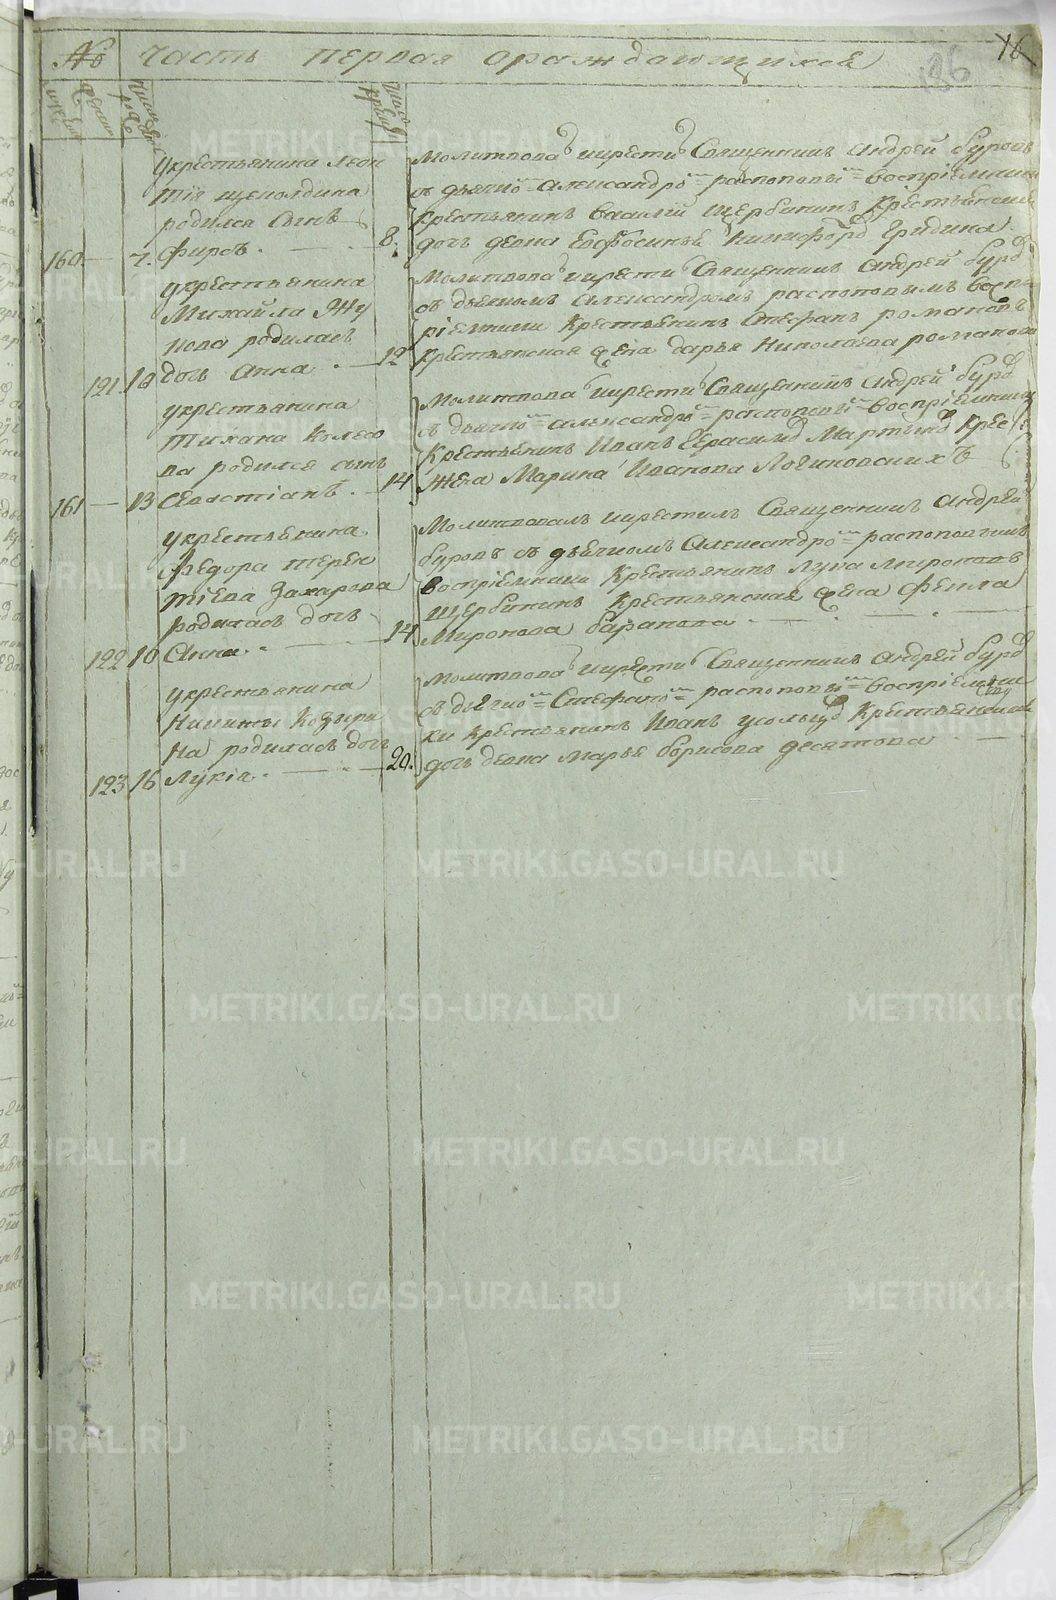 № Часть первая ораждающихся 16
136
мужеска
женска
число рожд
число крещ
укрестьянина Леон
тія Щеколдина
родился сынъ
160 — 7. Фирсъ. — 8.
Молитвовал икрестил Священник Андрей Буров
съ дьячком Александром Распоповым Воспріемники
крестьянинъ Василій Щербининъ Крестьянская
дочь девка Евфросинья Никифорова Гредина.
укрестьянина
Михайла Жу
кова родилась
121. 10 дочь Анна. — 12
Молитвовал икрестил Священникъ Андрей Буров
съ дьячкомъ Александромъ Распоповымъ Восп
ріемники Крестьянинъ Стефанъ Романовъ
Крестьянская жена Дарья Николаева Романова
укрестьянина
Тихана Колесо
ва родился сынъ
161 — 13 Севастіанъ. — 14
Молитвовал икрестил Священникъ Андрей Буров
съ дьячком Александром Распоповым Воспріемники
Крестьянинъ Иванъ Герасимов Мартынов Крес
жена Марина Иванова Логиновскихъ
укрестьянина
Федора Терен
тіева Захарова
родилась дочь
122 10 Анна. — 14
Молитвовалъ икрестилъ Священникъ Андрей
Буровъ съ дьячкомъ Александром Распоповымъ
воспріемники Крестьянинъ Лука Мироновъ
Щербининъ Крестьянская жена Фекла
Миронова Баранова —
укрестьянина
Никиты Козыри
на родилась дочь
123 16 Лукіа. — 20.
Молитвовал икрестил Священникъ Андрей Буров
съ дьячком Стефаном Распоповым Воспріемни
ки крестьянинъ Иванъ Усольцов Крестьянская
дочь девка Марья Борисова Десятова —
METRIKI.GASO-URAL.RU